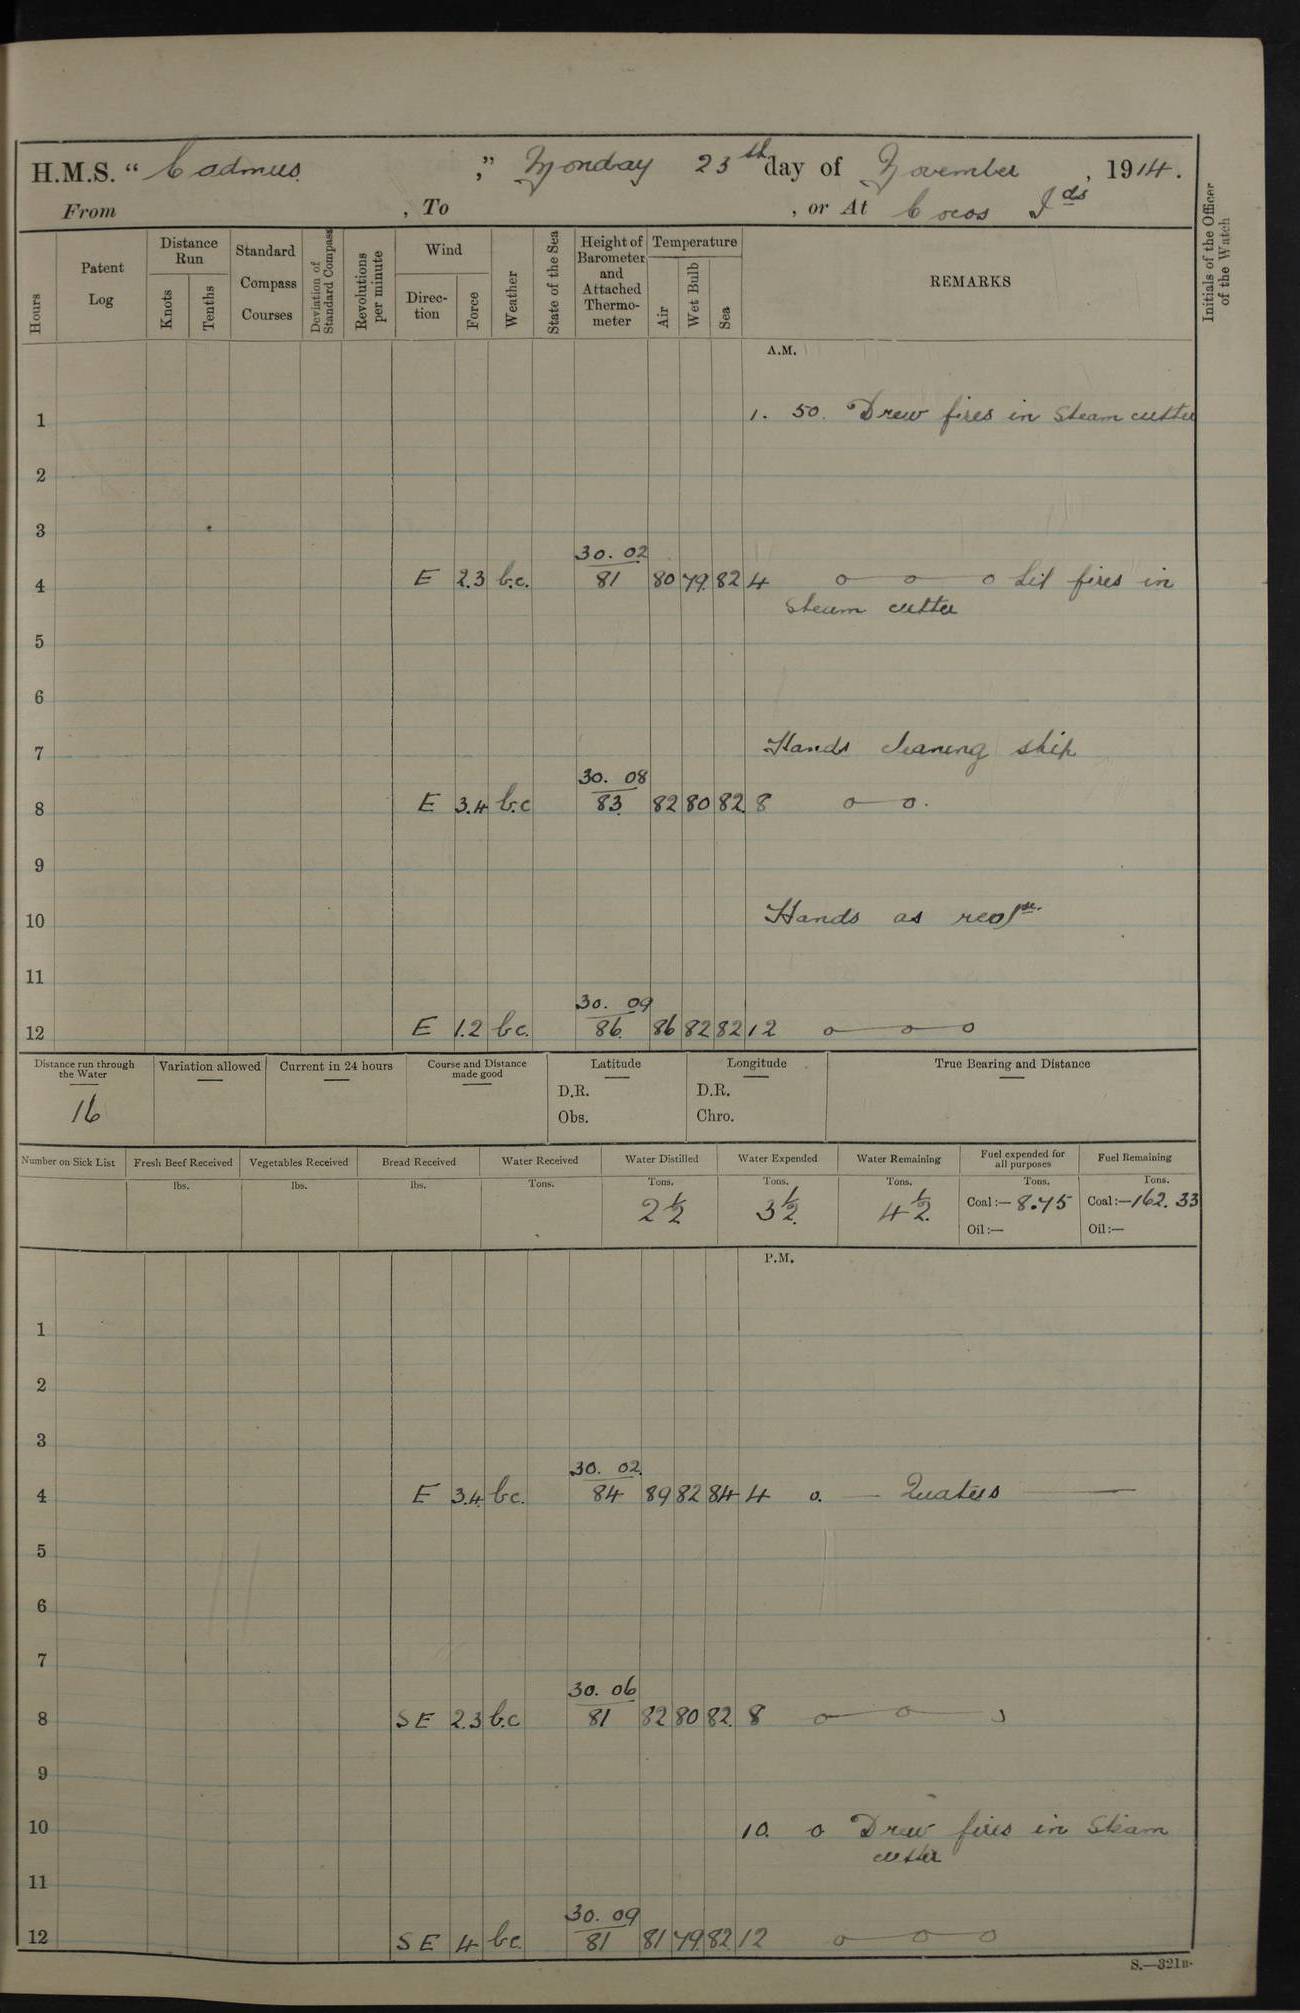 H.M.S. “ Cadmus ,” Monday 23th day of November , 1914.
From , To , or At Cocos Ids
Hours
Patent Log
Distance Run
Knots
Tenths
Standard Compass Courses
Deviation of Standard Compass
Revolutions per minute
Wind
Direc- tion
Force
Weather
State of the Sea
Height of Barometer and Attached Thermo- meter
Temperature
Air
Wet Bulb
Sea
REMARKS
Initials of the Officer of the Watch
A.M.
1 1. 50. Drew fires in Steam cutter
2
3
30. 02
4 E 2.3 b.c. 81 80 79. 82 4 o—o—o Lit fires in
Steam cutter
5
6
7 Hands cleaning ship
30. 08
8 E 3.4 b.c 83. 82 80 82 8 o—o.
9
10 Hands as
11
30. 09
12 E 1.2 b.c. 86. 86 82 82 12 o—o—o
Distance run through the Water
Variation allowed
Current in 24 hours
Course and Distance made good
Latitude
Longitude
True Bearing and Distance
16
D.R. D.R.
Obs. Chro.
Number on Sick List
Fresh Beef Received
Vegetables Received
Bread Received
Water Received
Water Distilled
Water Expended
Water Remaining
Fuel expended for all purposes
Fuel Remaining
lbs. lbs. lbs. Tons. Tons. Tons. Tons. Tons. Tons.
2½ 3½ 4½ Coal:— 8.75 Coal:— 162.33
Oil:— Oil:—
P.M.
1
2
3
30. 02.
4 E 3.4 b.c. 84 89 82 84 4 o. — Quarters —
5
6
7
30. 06
8 SE 2.3 b.c 81 82 80 82. 8 o—o—
9
10 10. o Drew fires in Steam
cutter
11
30. 09
12 SE 4 b.c. 81 81 79. 82 12 o—o—o
S.—321B.